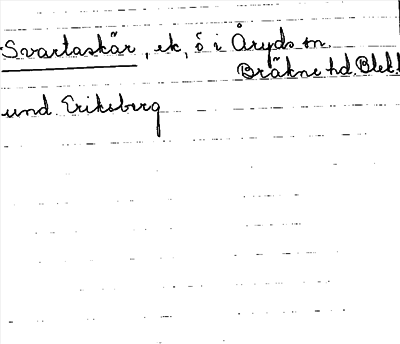 Svartaskär, ek, ö i Åryds sn.
Bräkne hd. Blek.
und. Eriksberg